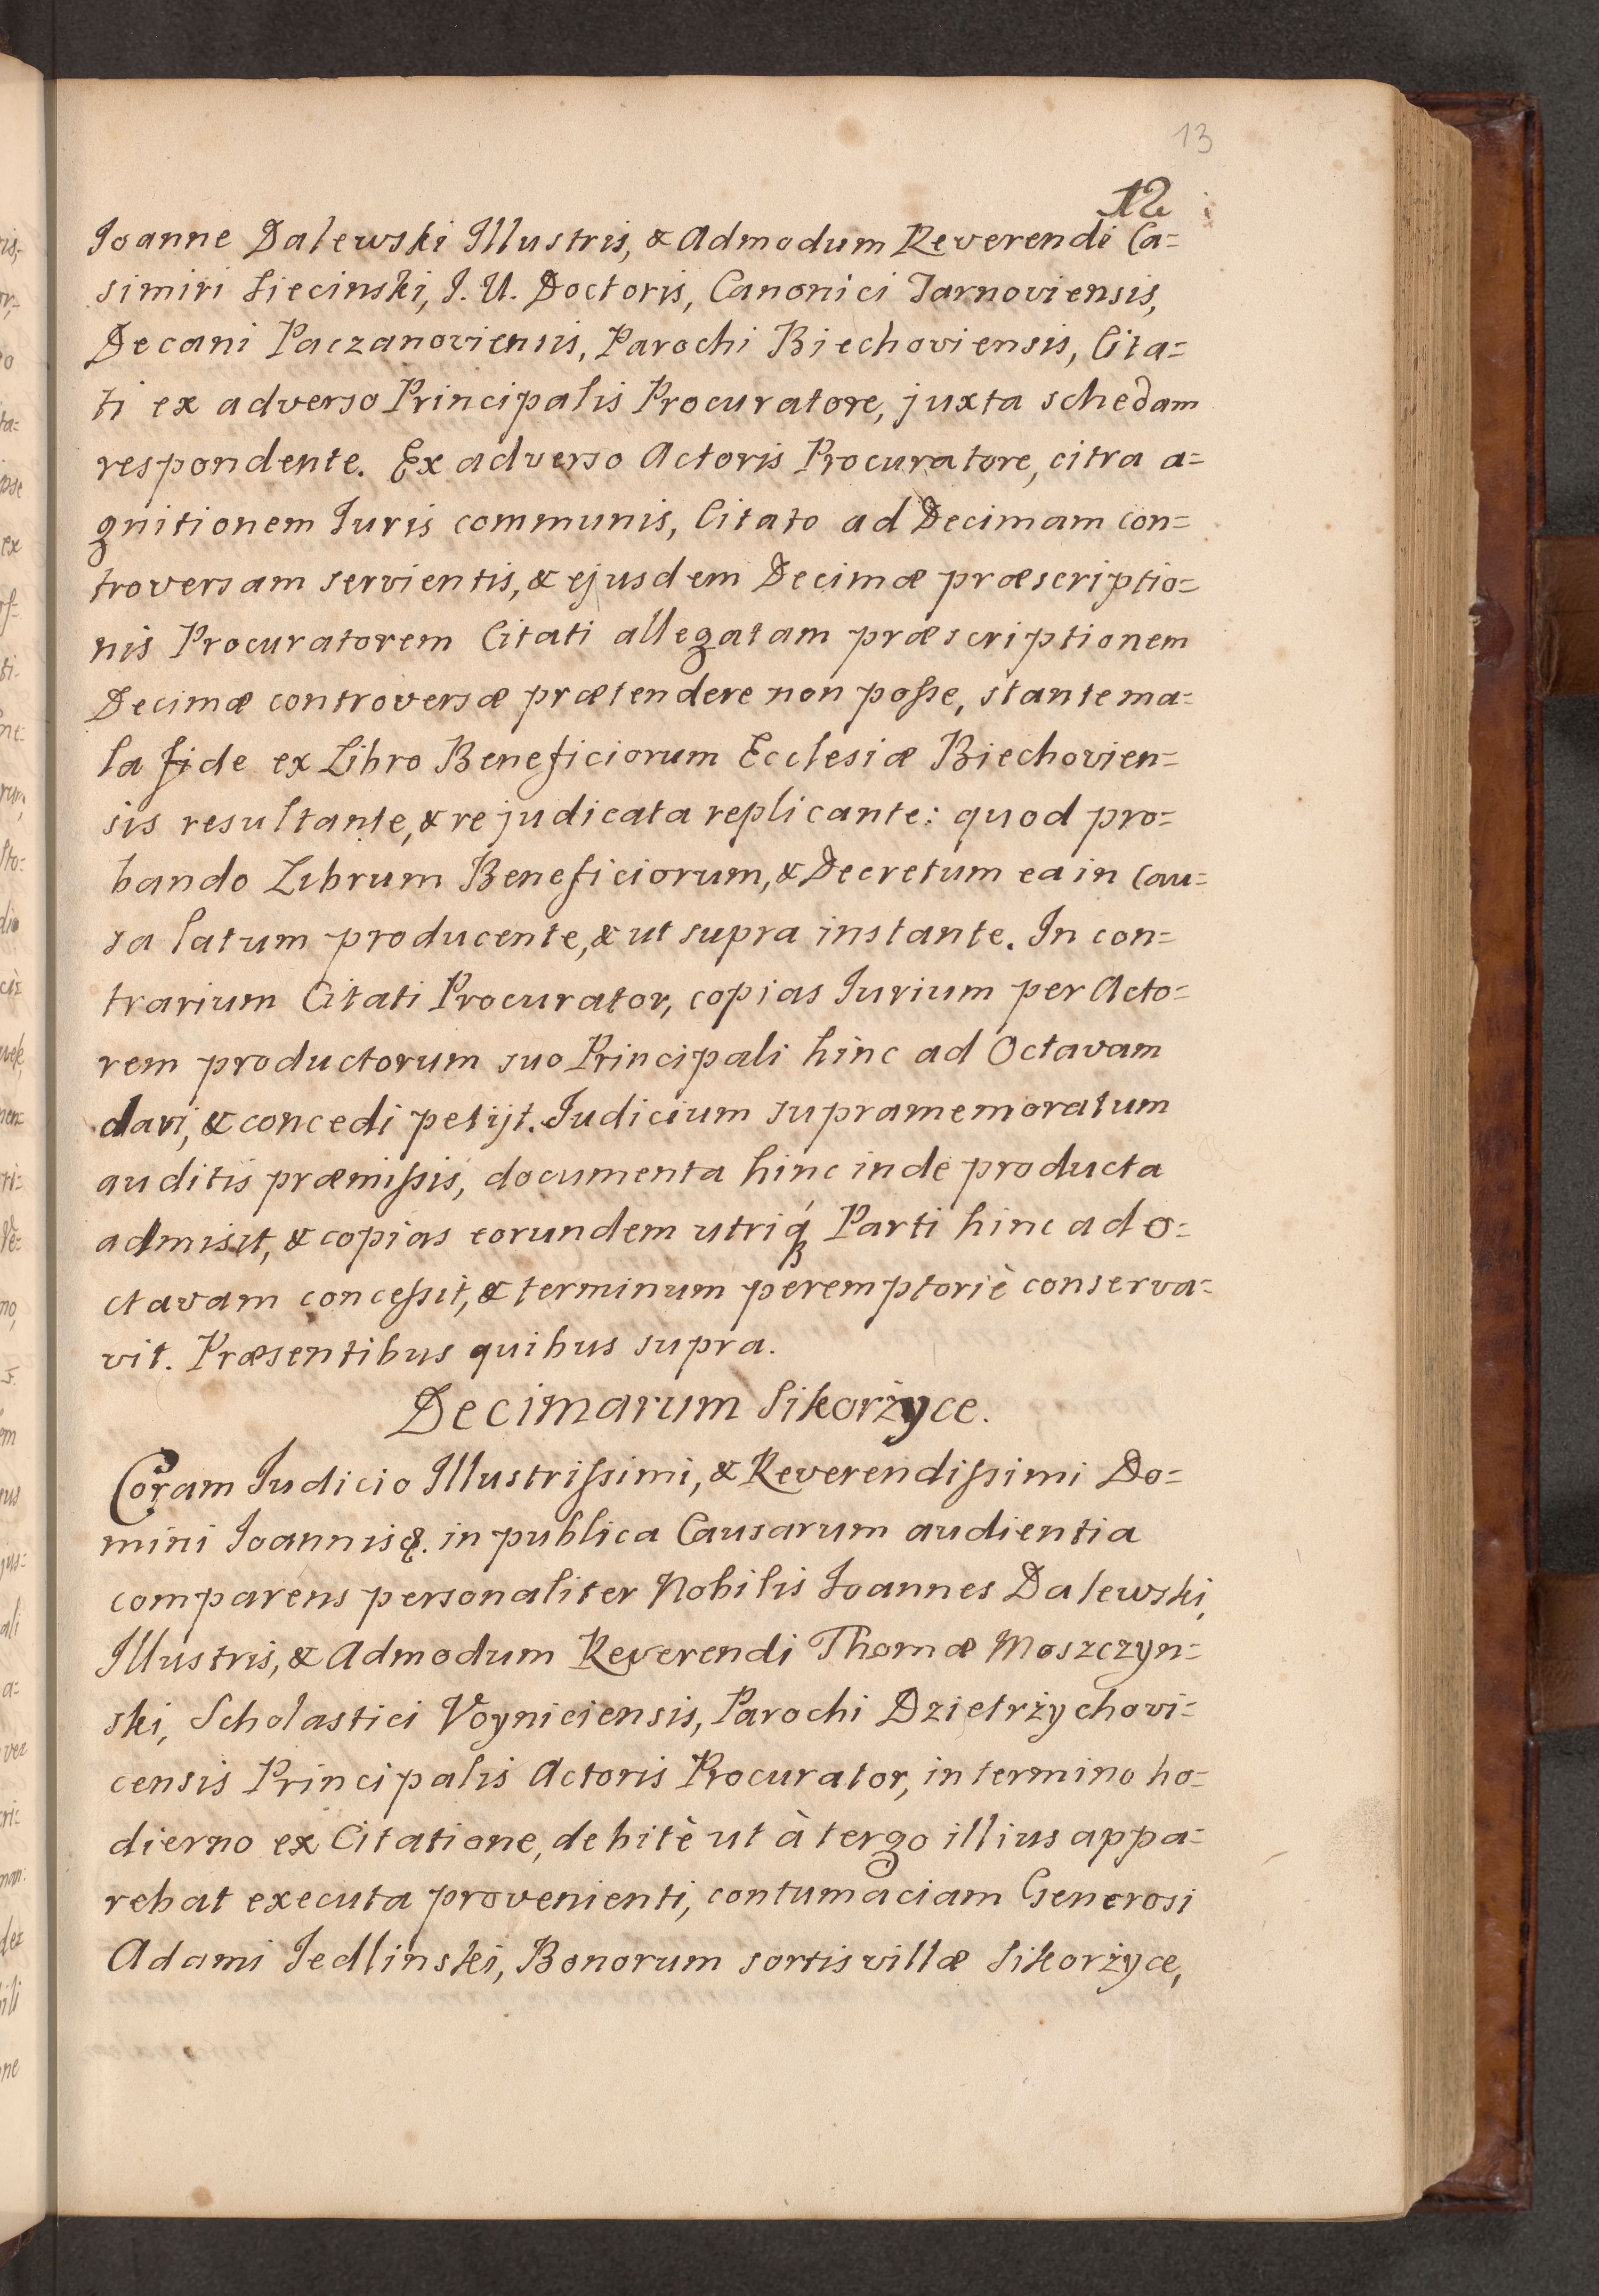 13
12
Joanne Dalewski Illustris, & Admodum Reverendi Ca=
simiri Siecinski, J. U. Doctoris, Canonici Tarnoviensis,
Decani Paczanoviensis, Parochi Biechoviensis, Cita=
ti ex adverso Principalis Procuratore, juxta schedam
respondente. Ex adverso Actoris Procuratore, citra a=
gnitionem Juris communis, Citato ad Decimam con=
troversam servientis, & ejusdem Decimæ præscriptio=
nis Procuratorem Citati allegatam præscriptionem
Decimæ controversæ prætendere non posse, stante ma=
la fide ex Libro Beneficiorum Ecclesiæ Biechovien=
sis resultante, & re judicata replicante: quod pro=
bando Librum Beneficiorum, & Decretum ea in Cau=
sa latum producente, & ut supra instante. In con=
trarium Citati Procurator, copias Jurium per Acto=
rem productorum suo Principali hinc ad Octavam
dari, & concedi petijt. Judicium supramemoratum
auditis præmissis, documenta hinc inde producta
admisit, & copias eorundem utriq́ Parti hinc ad o=
ctavam concessit, & terminum peremptoriè conserva=
vit. Præsentibus quibus supra.
Decimarum Sikorżyce.
Coram Judicio Illustrissimi, & Reverendissimi Do=
mini Joannis &. in publica Causarum audientia
comparens personaliter Nobilis Joannes Dalewski,
Illustris, & Admodum Reverendi Thomæ Moszczyn=
ski, Scholastici Voyniciensis, Parochi Dzietrżychovi=
censis Principalis Actoris Procurator, in termino ho=
dierno ex Citatione, debitè ut à tergo illius appa=
rebat executa provenienti, contumaciam Generosi
Adami Jedlinski, Bonorum sortis villæ Sikorżyce,